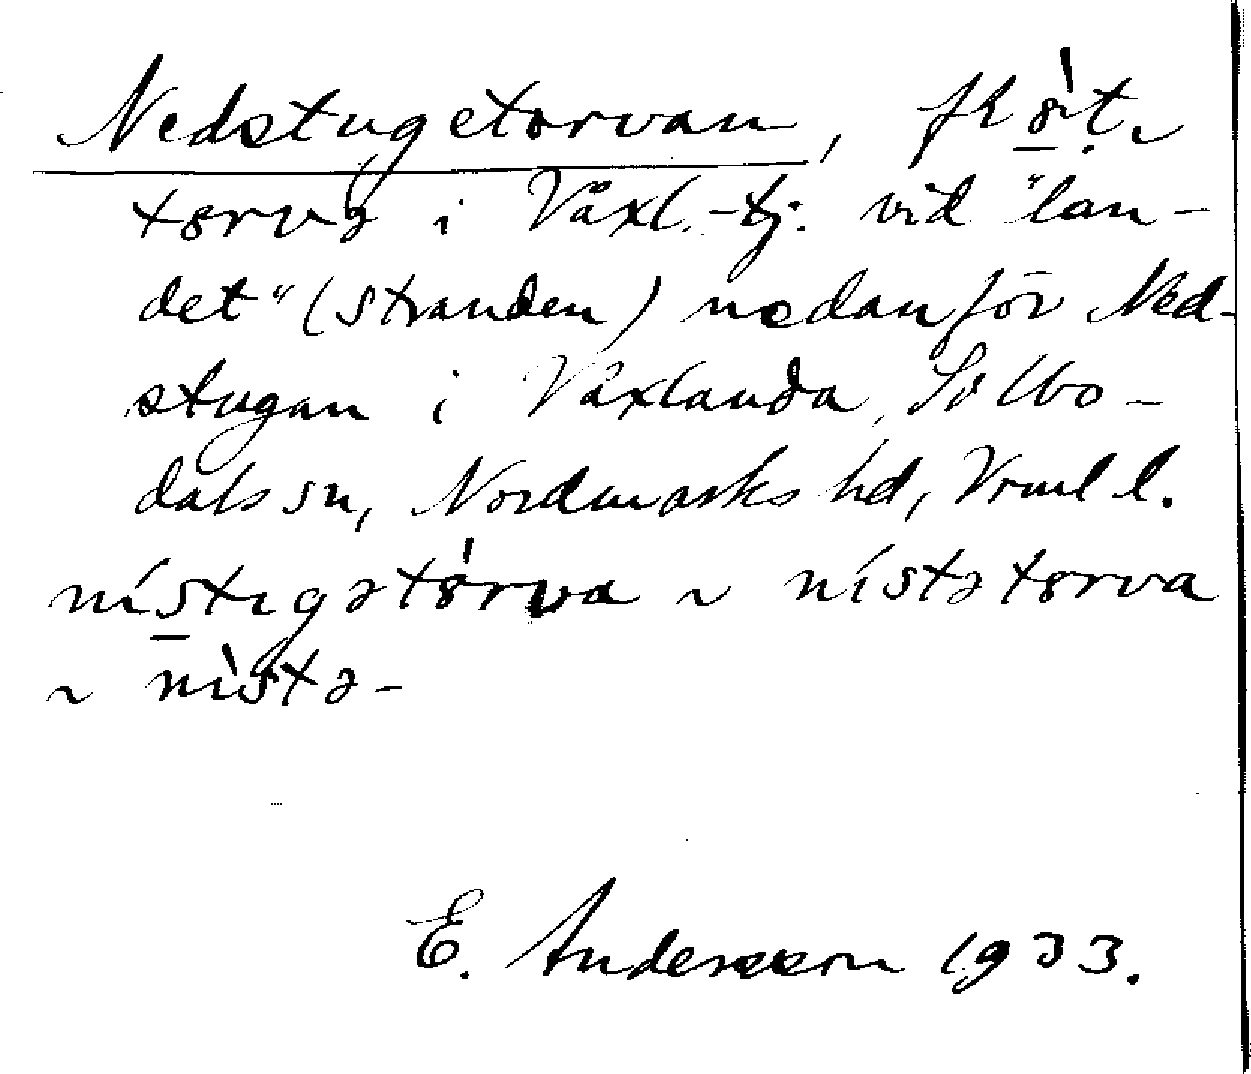 Nedstugetorvan, fl
torvə i Växl.-tj. vid "lan-
det" (stranden) nedanför Ned-
stugan i Växlanda, Sillbo-
dals sn, Nordmarks hd, Vrml l.
nístıgətȯrva ~ nístətɵrva
~ nìstə-
E. Andersson 1933.